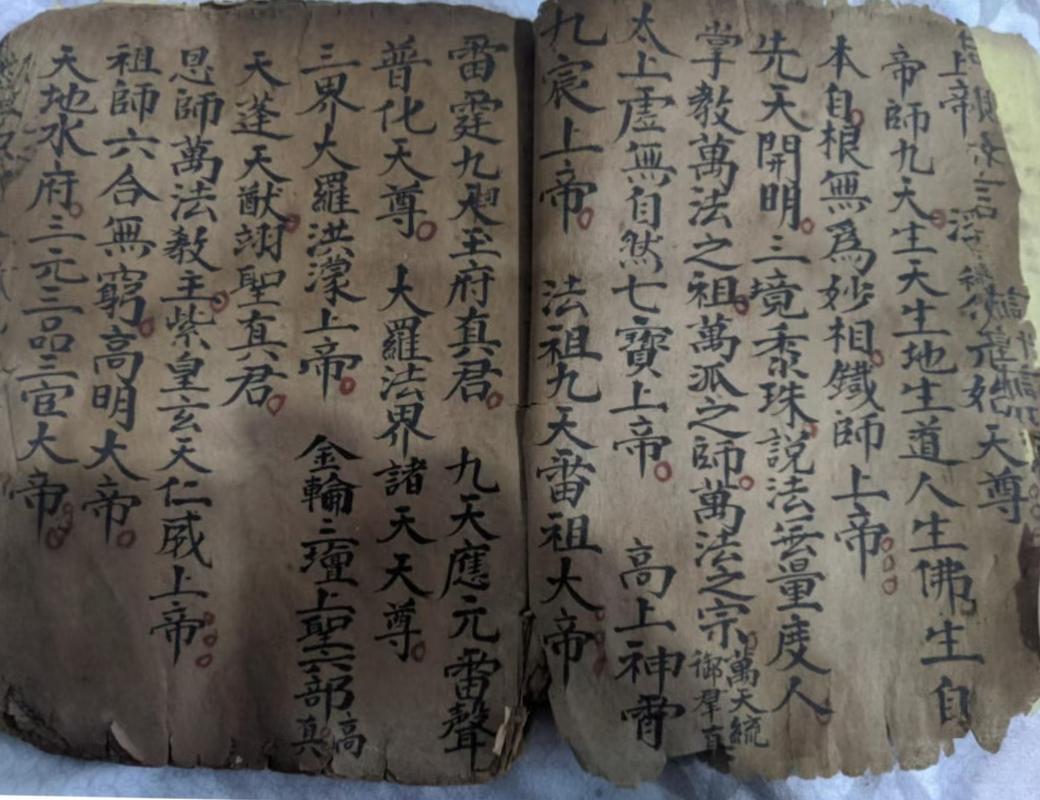 元始天尊
帝師九天生天生地生道人生佛生自
本自根無爲妙相鐵師上帝
先天開明三境黍珠説法無量度人
掌教萬法之祖萬派之師萬法之宗萬天統御羣真
太上虛無自然七寶上帝 高上神霄
九宸上帝 法祖九天雷祖大帝
雷霆九天王府真君 九天應元雷聲
普化天尊 大羅法界諸天天尊
三界大羅洪濛上帝 金輪三壇上聖六部高真
天蓬天猷翊聖真君
恩師萬法教主紫皇玄天仁威上帝
祖師六合無窮高明大帝
天地水府三元三品三官大帝